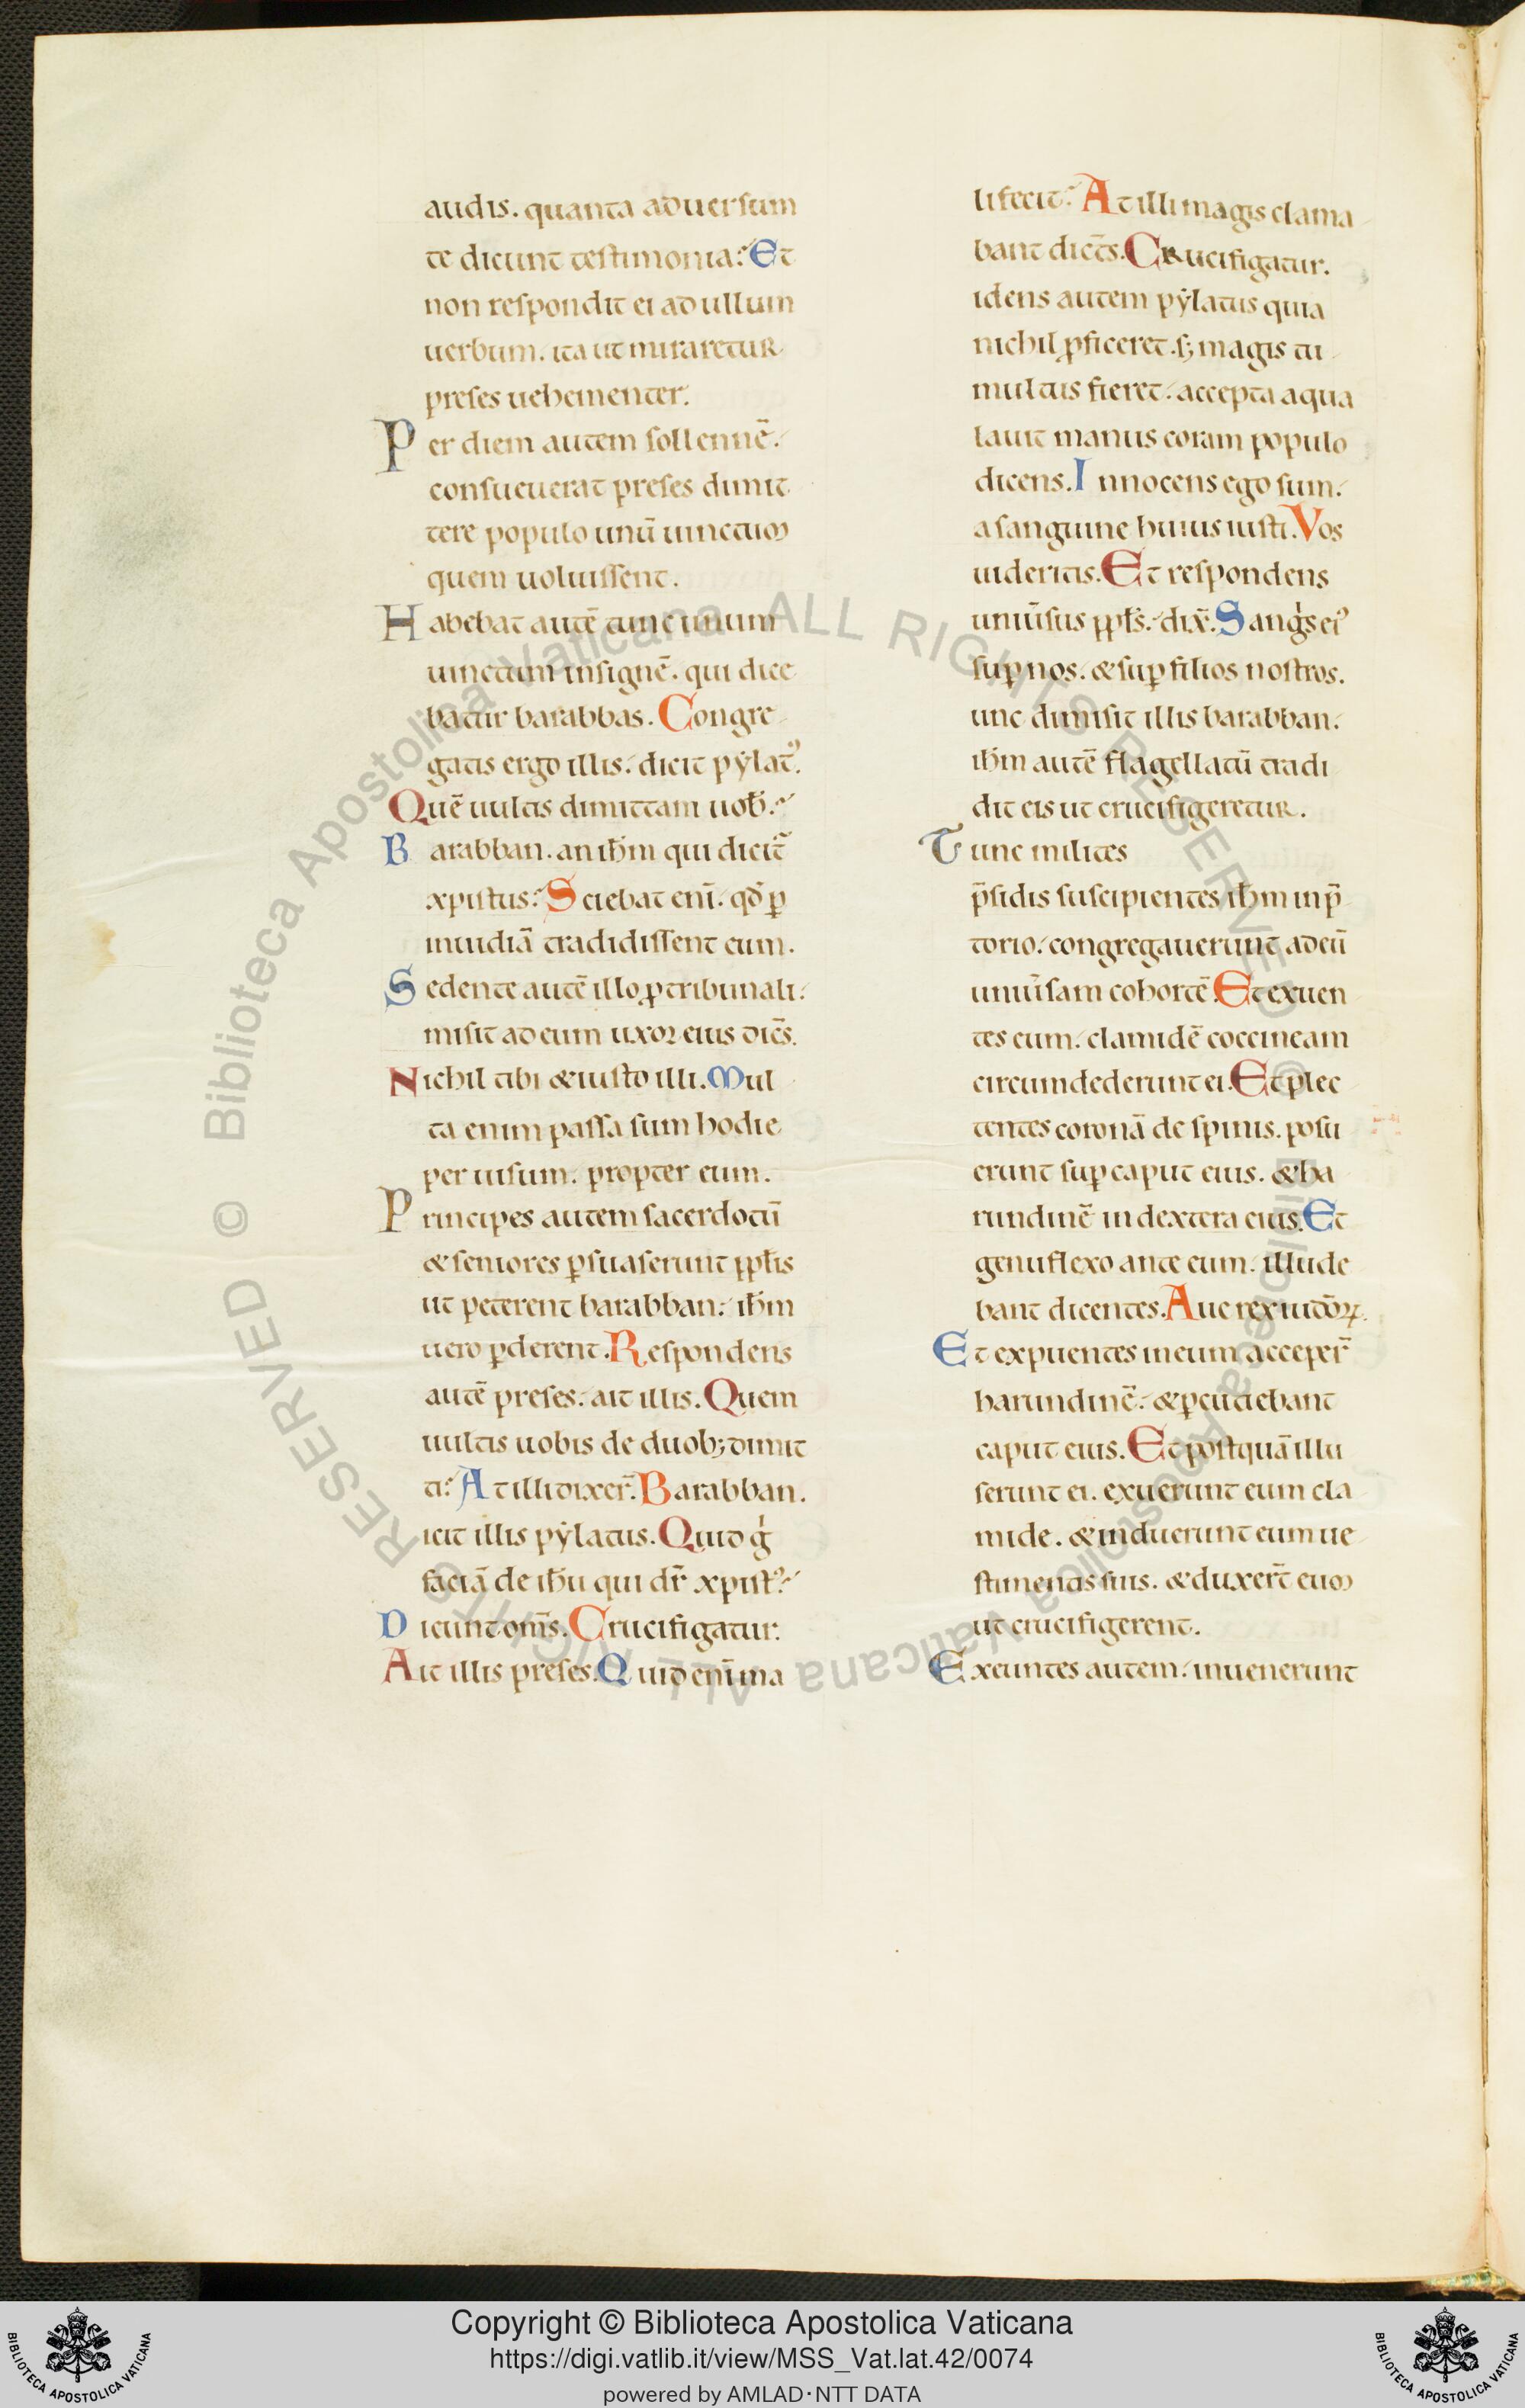 audis. quanta aduersum
te dicunt testimonia? Et
non respondit ei ad ullum
uerbum. ita ut miraretur
preses uehementer.
Per diem autem sollennē.
consueuerat preses dimit
tere populo unū uinctum
quem uoluissent.
Habebat autē tunc unum
uinctum insignē. qui dice
batur barabbas. Congre
gatis ergo illis. dicit pẏlatꝰ.
Quē uultis dimittam uob̄?
Barabban. an ih̄m qui dicit̄
xpistus? Sciebat enī. qd̄ ꝑ
inuidiā tradidissent eum.
Sedente autē illo ꝓ tribunali.
misit ad eum uxor eius dic̄s.
Nichil tibi & iusto illi. Mul
ta enim passa sum hodie
per uisum. propter eum.
Principes autem sacerdotū
& seniores ꝑsuaserunt ppl̄is
ut peterent barabban. ih̄m
uero ꝑderent. Respondens
autē preses. ait illis. Quem
uultis uobis de duobꝫ dimit
ti? At illi dixer̄. Barabban.
icit illis pẏlatus. Quid gͥ
faciā de ih̄u qui dr̄ xpistꝰ?
Dicunt om̄s. Crucifigatur.
Ait illis preses. Quid enī ma
li fecit? At illi magis clama
bant dicēs. Crucifigatur.
idens autem pẏlatus quia
nichil ꝓficeret. sꝫ magis tu
multus fieret. accepta aqua
lauit manus coram populo
dicens. Innocens ego sum.
a sanguine huius iusti. Vos
uideritis. Et respondens
uniūsus ppl̄s. dix̄. Sangͥs eiꝰ
suꝑ nos. & suꝑ filios nostros.
unc dimisit illis barabban.
ih̄m autē flagellatū tradi
dit eis ut crucifigeretur.
Tunc milites
p̄sidis suscipientes ih̄m in p̄
torio. congregauerunt ad eū
uniūsam cohortē. Et exuen
tes eum. clamidē coccineam
circumdederunt ei. Et plec
tentes coronā de spinis. posu
erunt suꝑ caput eius. & ha
rundinē in dextera eius. Et
genu flexo ante eum. illude
bant dicentes. Aue rex iudōꝝ.
Et expuentes in eum acceper̄
harundinē. & ꝑcutiebant
caput eius. Et postquā illu
serunt ei. exuerunt eum cla
mide. & induerunt eum ue
stimentis suis. & duxer̄t eum
ut crucifigerent.
Exeuntes autem. inuenerunt
© Biblioteca Apostolica Vaticana ALL RIGHTS RESERVED
© Biblioteca Apostolica Vaticana ALL RIGHTS RESERVED
Copyright © Biblioteca Apostolica Vaticana
https://digi.vatlib.it/view/MSS_Vat.lat.42/0074
powered by AMLAD·NTT DATA
BIBLIOTECA APOSTOLICA VATICANA
BIBLIOTECA APOSTOLICA VATICANA